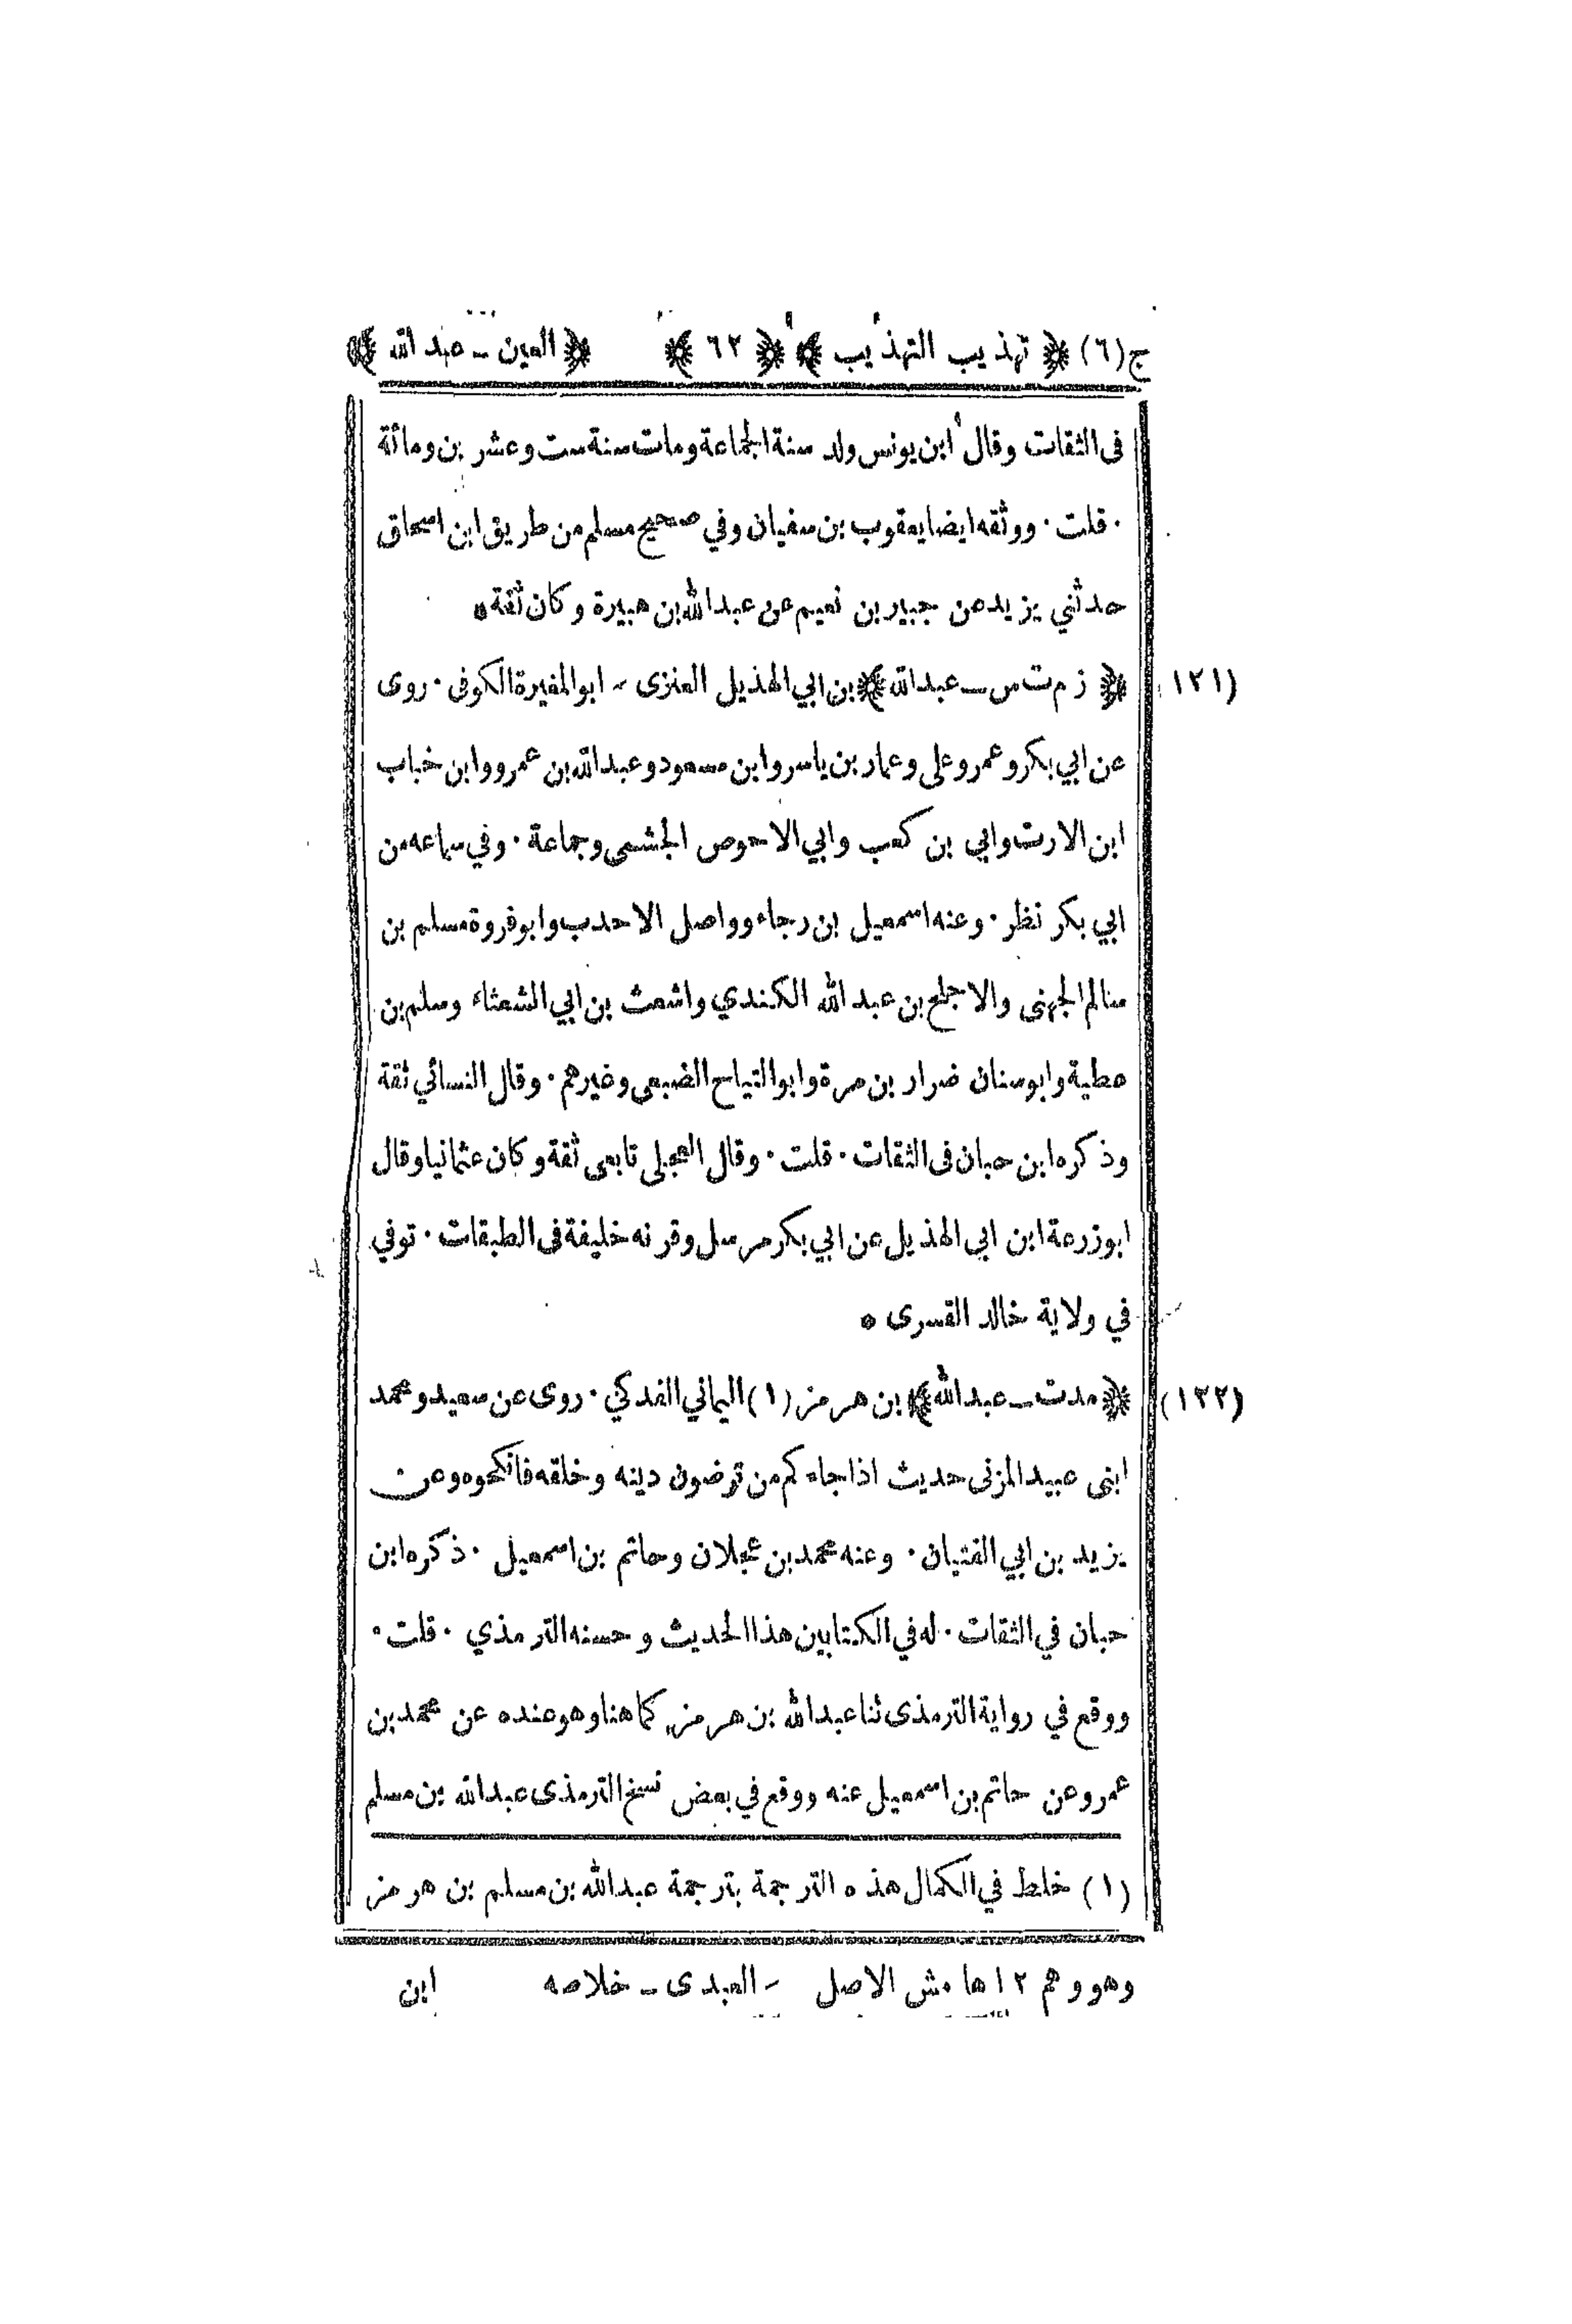 ج(٦) ﴿ تهذيب التهذيب ﴾ ﴿ ٦٢ ﴾ ﴿ العين ـ عبد الله ﴾
فى الثقات وقال ابن يونس ولد سنة الجماعة ومات سنة ست وعشرين ومائة
٠ قلت ٠ ووثقه ايضا يعقوب بن سفيان وفي صحيح مسلم من طريق ابن اسحاق
حدثني يزيد عن جبير بن نعيم عن عبد الله بن هبيرة وكان ثقة ٥
(١٢١) ﴿ ز م ت س ـ عبد الله ﴾ بن ابي الهذيل العنزى ~ ابو المغيرة الكوفى ٠ روى
عن ابي بكر وعمر وعلى وعمار بن ياسر وابن مسعود وعبد الله بن عمرو وابن خباب
ابن الارت وابي بن كعب وابي الاحوص الجشمى وجماعة ٠ وفي سماعه من
ابي بكر نظر ٠ وعنه اسمعيل بن رجاء وواصل الاحدب وابو فروة مسلم بن
سالم الجهنى والاجلح بن عبد الله الكندي واشعث بن ابي الشعثاء وسلم بن
عطية وابو سنان ضرار بن مرة وابو التياح الضبعى وغيرهم ٠ وقال النسائي ثقة
وذكره ابن حبان فى الثقات ٠ قلت ٠ وقال العجلى تابعى ثقة وكان عثمانيا وقال
ابو زرعة ابن ابي الهذيل عن ابي بكر مرسل وقرنه خليفة فى الطبقات ٠ توفي
في ولاية خالد القسرى ٥
(١٢٢) ﴿ مد ت ـ عبد الله ﴾ بن هرمز (١) اليماني الفدكي ٠ روى عن سعيد ومحمد
ابنى عبيد المزنى حديث اذا جاءكم من ترضون دينه وخلقه فانكحوه وعن
يزيد بن ابي الفتيان ٠ وعنه محمد بن عجلان وحاتم بن اسمعيل ٠ ذكره ابن
حبان في الثقات ٠ له في الكتابين هذا الحديث وحسنه الترمذي ٠ قلت ٠
ووقع في رواية الترمذى ثنا عبد الله بن هرمز كما هنا وهو عنده عن محمد بن
عمرو عن حاتم بن اسمعيل عنه ووقع في بعض نسخ الترمذى عبد الله بن مسلم
(١) خلط في الكمال هذه الترجمة بترجمة عبد الله بن مسلم بن هرمز
وهو وهم ١٢ هامش الاصل ~ العبدى ـ خلاصه ابن